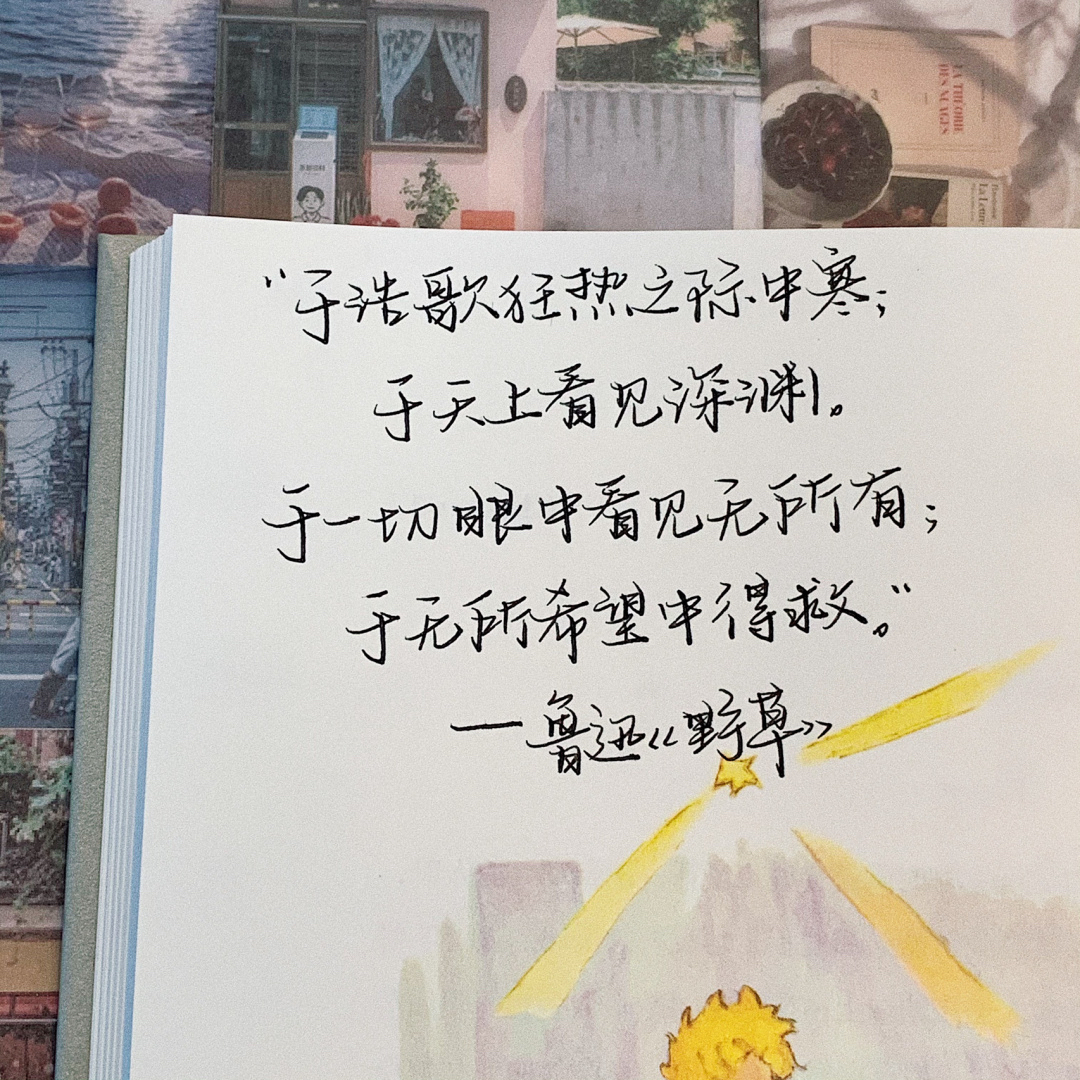 LA THÉORIE
DES NUAGES
“于浩歌狂热之际中寒;
于天上看见深渊。
于一切眼中看见无所有;
于无所希望中得救。”
—鲁迅《野草》